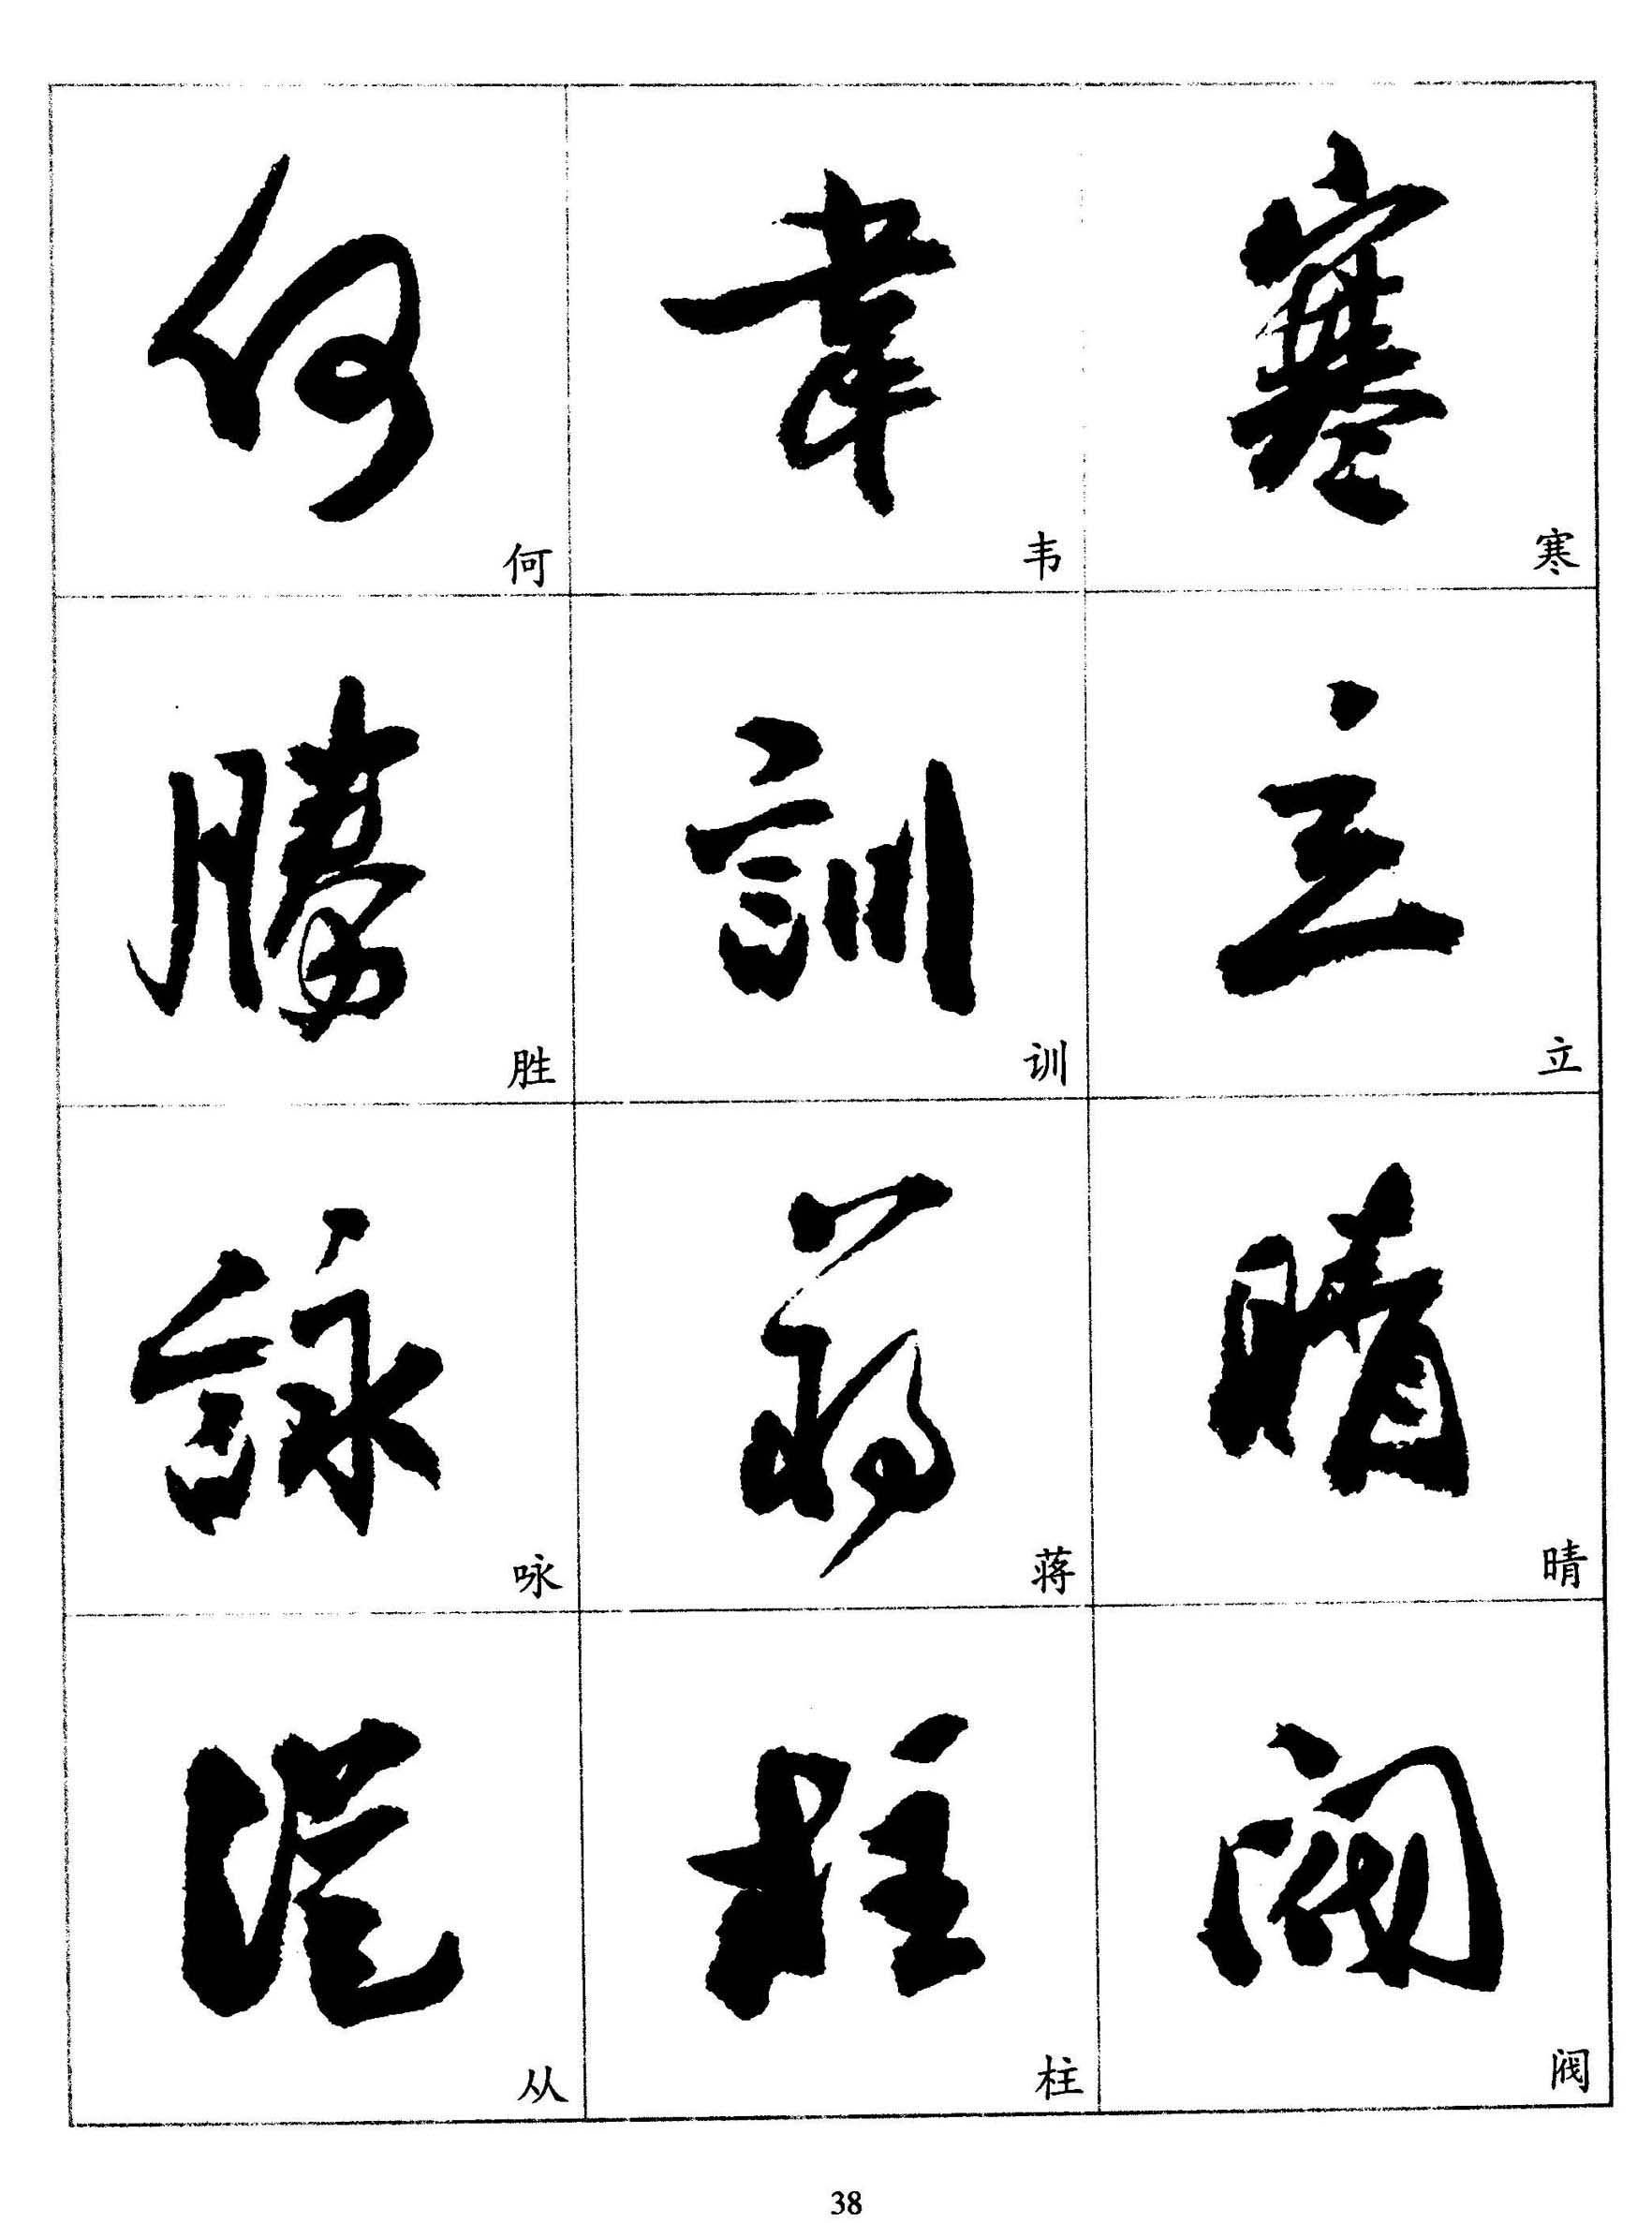 何 韦 寒
何 韋 寒
胜 训 立
勝 訓 立
咏 蒋 晴
詠 蔣 晴
从 柱 阀
從 柱 閥
38